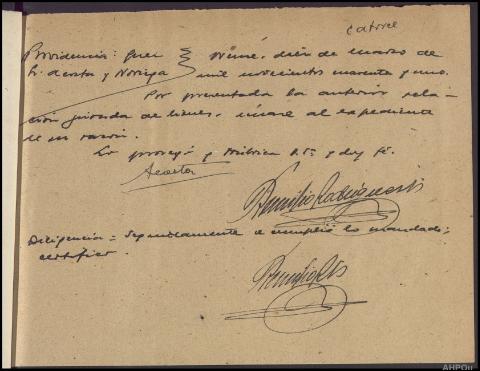 catorce
Providencia: Juez
Sr. Acosta y Noriega
Viana, diez de marzo de
mil novecientos cuarenta y uno.
Por presentada la anterior rela-
ción jurada de bienes, únase al expediente
de su razón.
Lo proveyó y rubrica S.Sª. doy fé.
Acosta
Remilio Rodríguez
Diligencia = Seguidamente se cumplió lo mandado;
certifico.
AHPOu